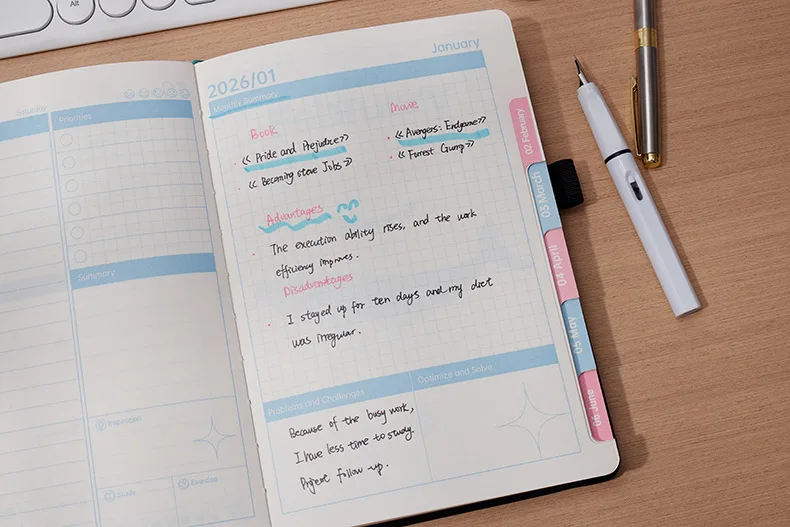 Alt
Saturday
Priorities
Summary
Inspiration
Study
Exercise
2026/01
January
Monthly Summary
Book
<< Pride and Prejudice>>
<< Becoming steve Jobs >>
Movie
<< Avengers: Endgame>>
<< Forrest Gump>>
Advantages
The execution ability rises, and the work
efficiency improves.
Disadvantages
I stayed up for ten days and my diet
was irregular.
Problems and Challenges
Because of the busy work,
I have less time to study.
Project follow-up.
Optimize and Solve
02 February
03 March
04 April
05 May
06 June